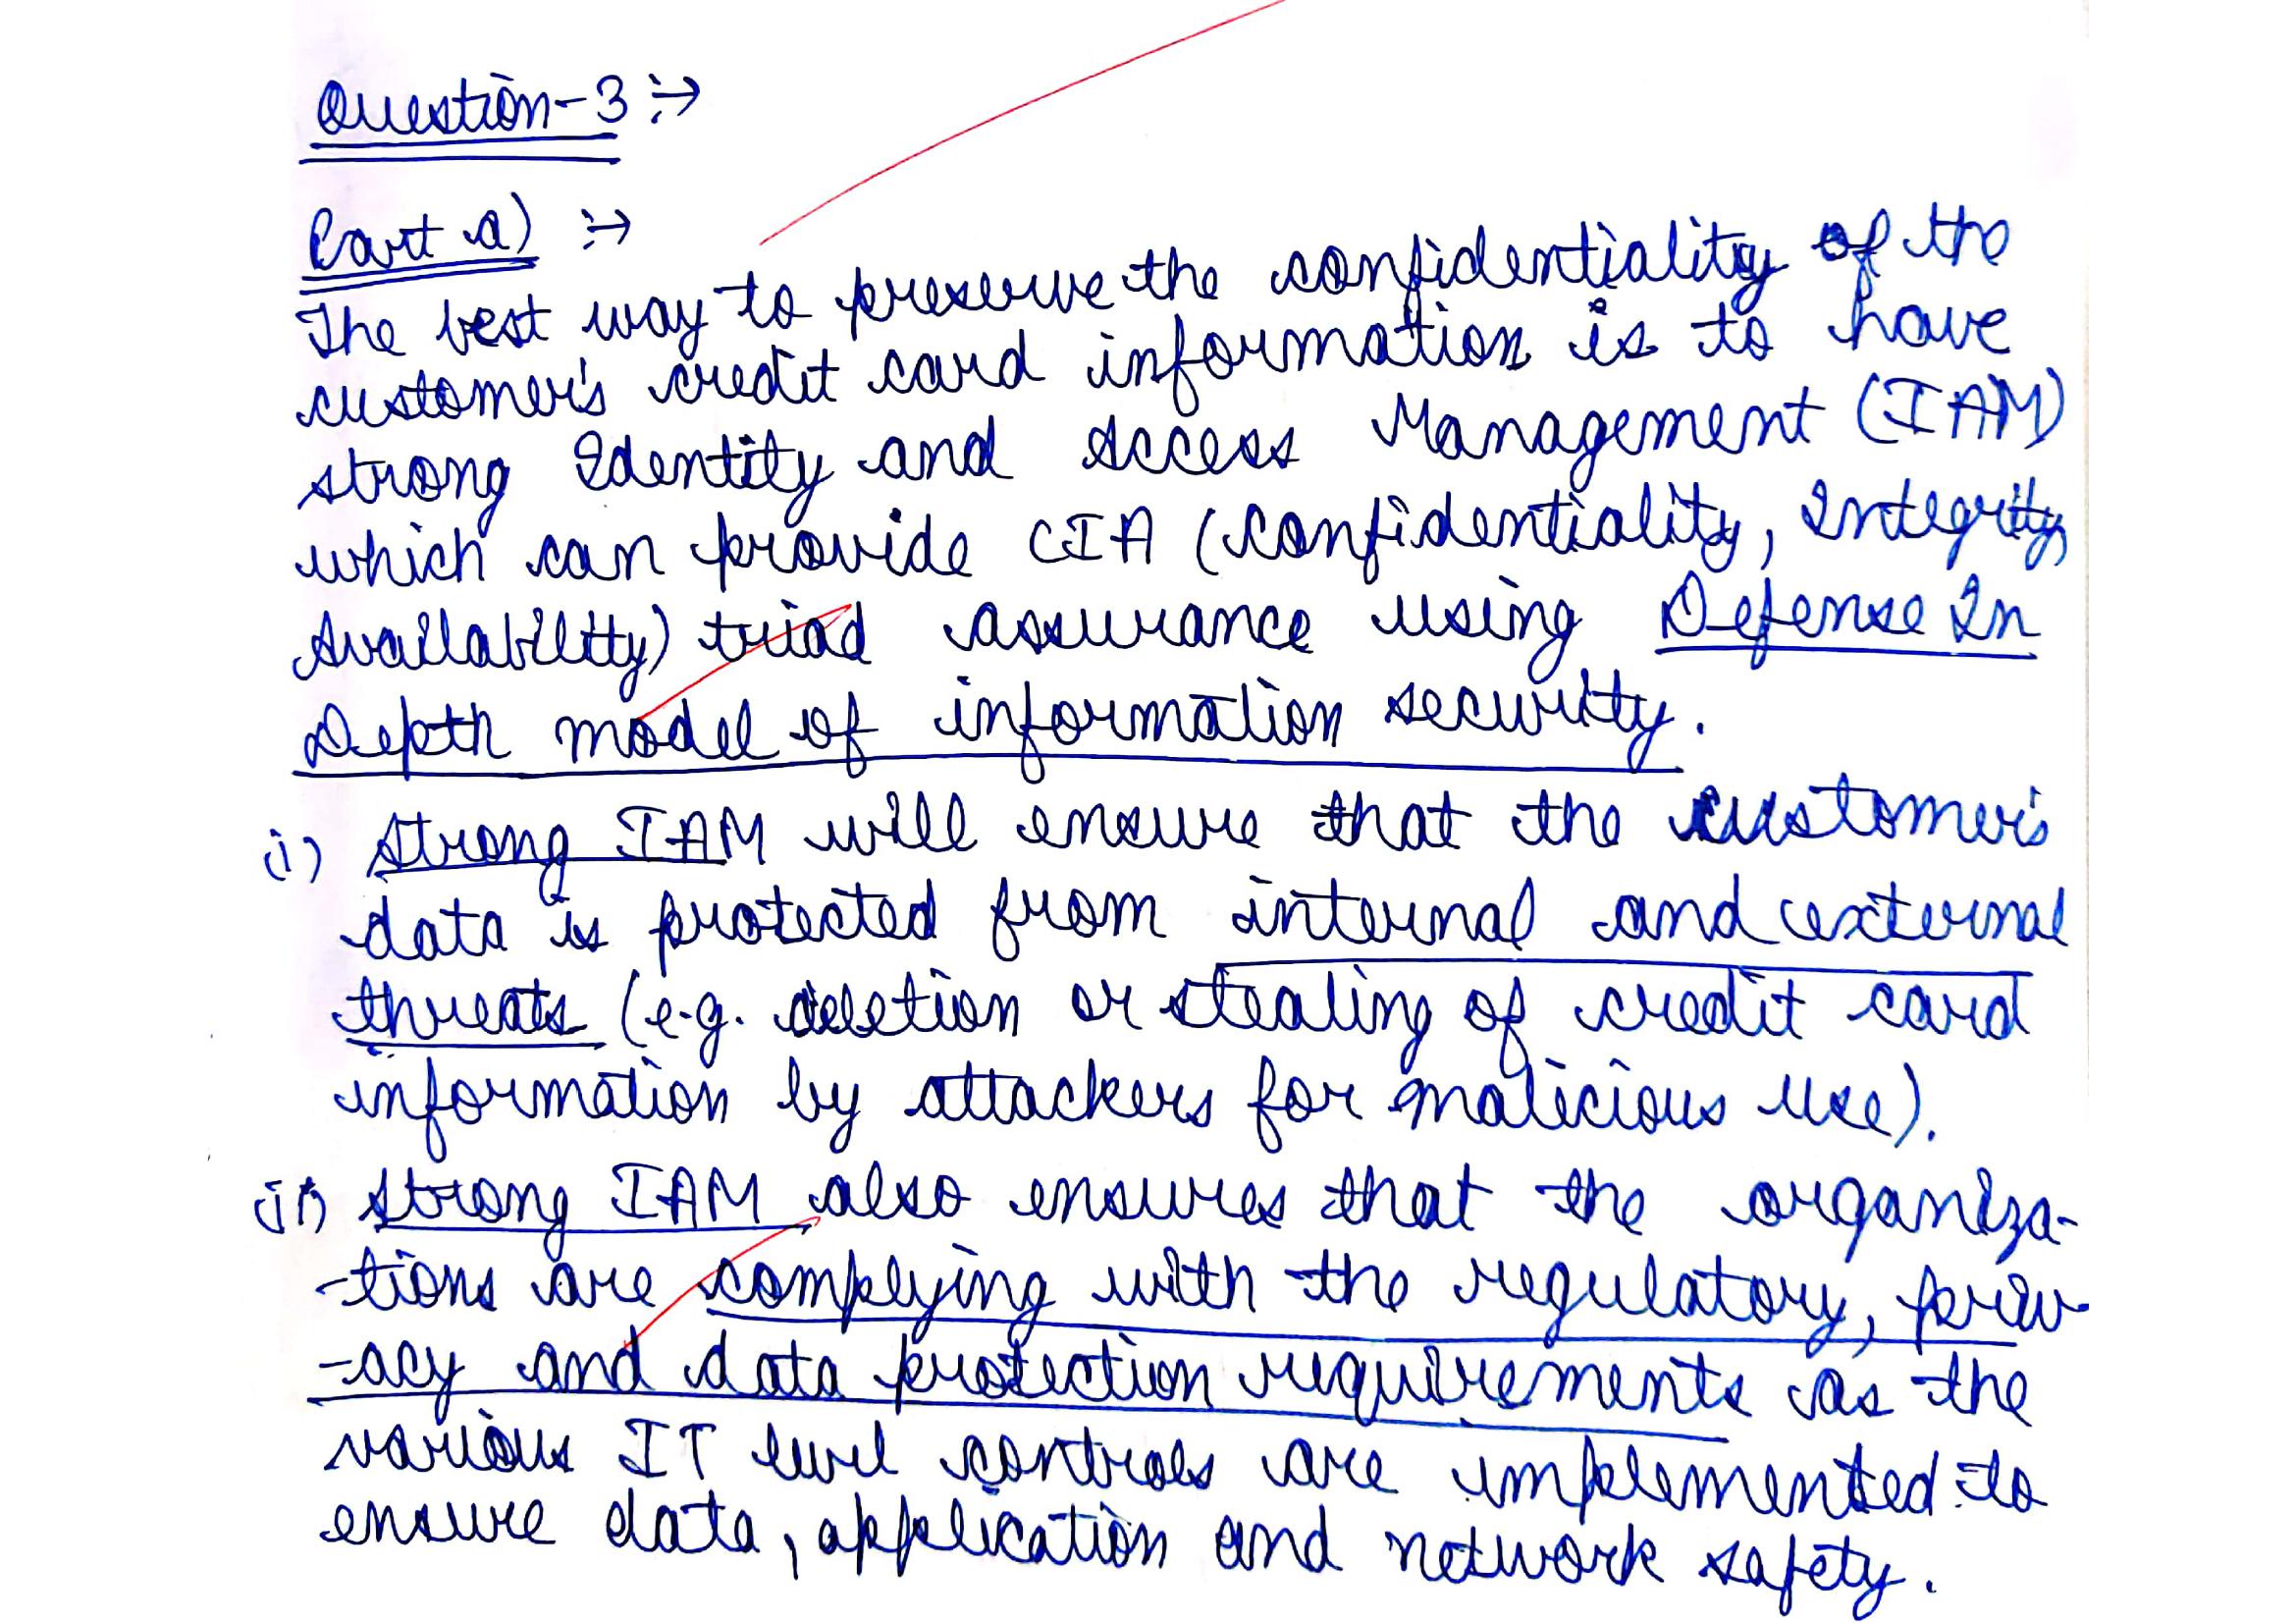 Question-3 :→
Part a) :→
The best way to preserve the confidentiality of the
customer's credit card information is to have
strong Identity and Access Management (IAM)
which can provide CIA (Confidentiality, Integrity,
Availability) triad assurance using Defense In
Depth model of information security.
i) Strong IAM will ensure that the customer's
data is protected from internal and external
threats (e.g. deletion or stealing of credit card
information by attackers for malicious use).
ii) Strong IAM also ensures that the organiza-
-tions are complying with the regulatory, priv-
-acy and data protection requirements as the
various IT level controls are implemented to
ensure data, application and network safety.